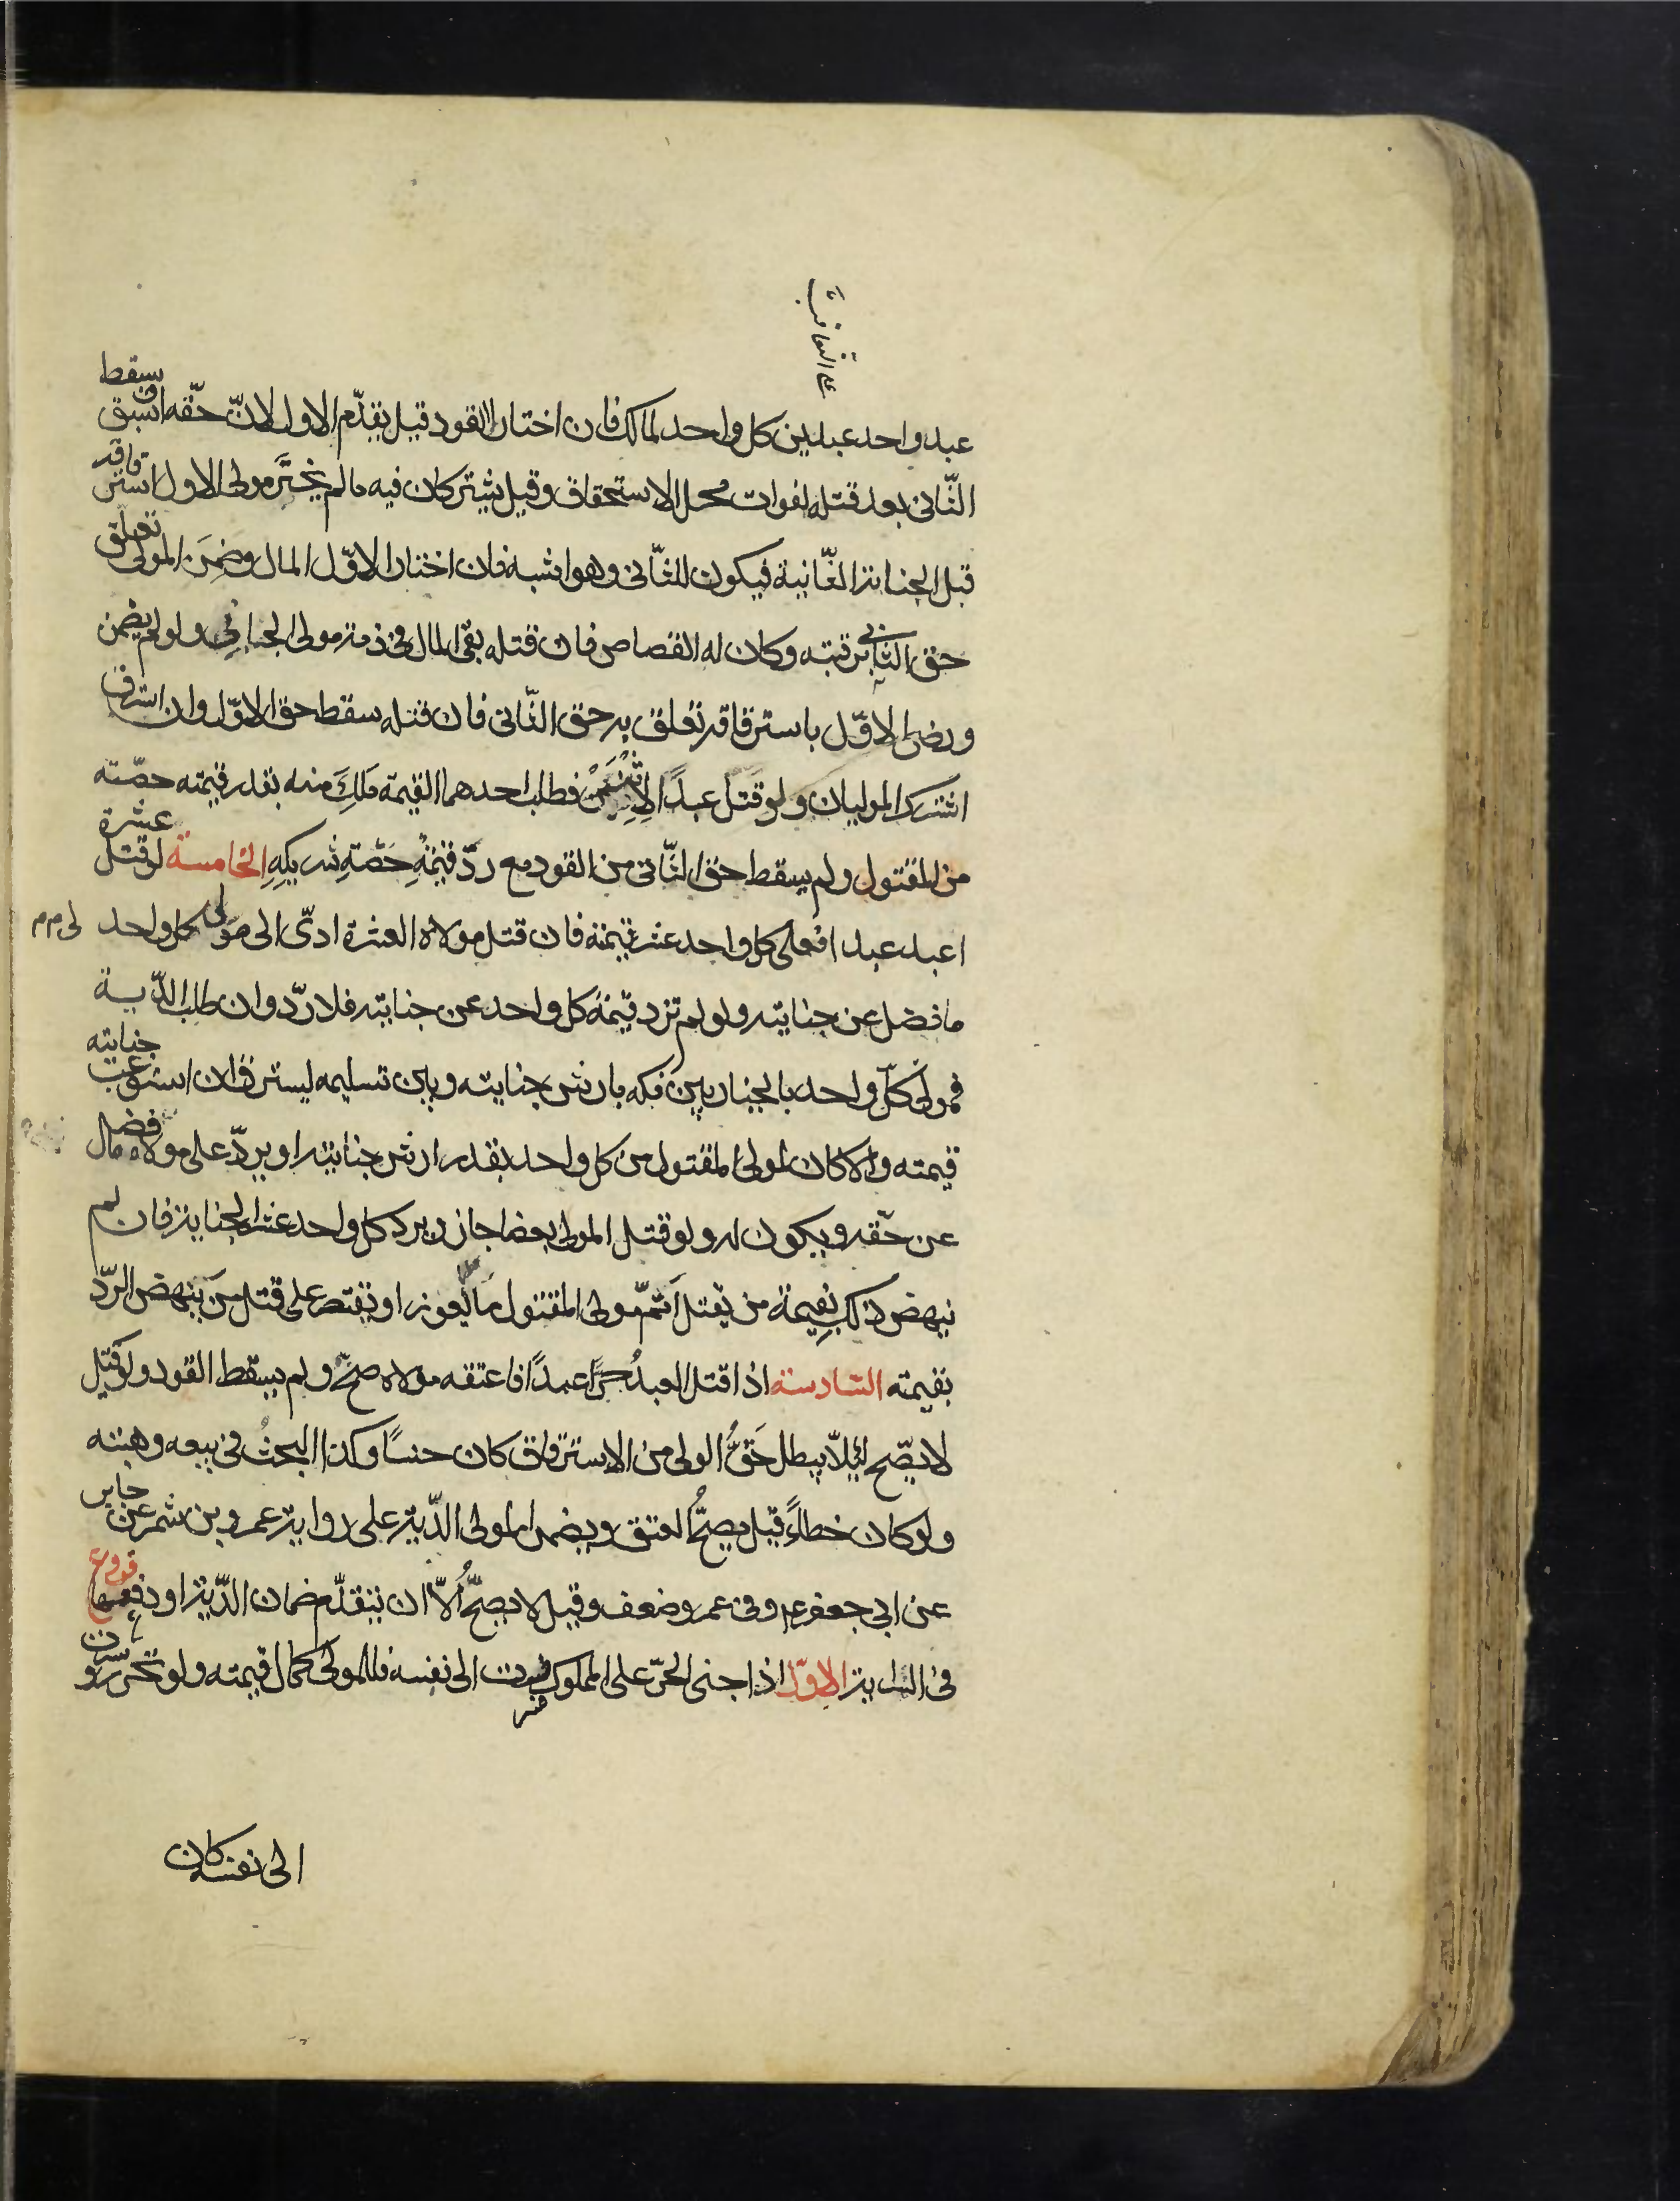 على التعاقب
عبد واحد عبدين كل واحد لمالك فان اختارا القود قيل يقدّم الاول لانّ حقّه اسبق ويسقط
الثّانى بعد قتله لفوات محل الاستحقاق وقيل يشتركان فيه ما لم يختَر مولى الاول استرقاقه
قبل الجناية الثّانية فيكون للثّانى وهو اشبه فان اختار الاوّل المال وضمِنَ المولى تعلق
حق الثانى برقبته وكان له القصاص فان قتله بقى المال فى ذمة مولى الجانى ولو لم يضمن
ورضى الاوّل باسترقاقه تعلق به حق الثّانى فان قتله سقط حق الاوّل وان استرق
اشترك الموليان ولو قَتَل عبدًا لاِثْنَيْن فطلب احدهما القيمة مَلكَ منه بقدر قيمته حصّته
من المقتول ولم يسقط حق الثّانى من القود مع ردّ قيمةِ حصّةِ شريكِهِ الخامسة لو قتل عشرة
اعبد عبدا فعلى كل واحد عشر قيمته فان قتل مولاه العشرة ادّى الى مولى كل واحد
ما فضل عن جنايته ولو لم تزد قيمة كل واحد عن جنايته فلا ردّ وان طلب الدّية
فمولى كلّ واحد بالخيار بين فكه بارش جنايته وبين تسليمه ليسترق ان استوعبت جنايته
قيمته والا كان لمولى المقتول من كل واحد بقدر ارش جنايته او يردّ على مولاه ما فضل
عن حقّه ويكون له ولو قتل المولى بعضا جاز ويرد كل واحد عشر الجناية فان لم
ينهض ذلك بِقيمة من يقتل اَتمّ مولى المقتول ما يعوز او يقتصر على قتل مَن ينهض الردّ
بقيمته السّادسة اذا قتل العبدُ حرًّا عمدًا فاعتقه مولاه صحّ ولم يسقط القود ولو قيل
لا يصّح لئلاّ يبطل حَقُّ الولى من الاسترقاق كان حسنًا وكذا البحثُ فى بيعه وهبته
ولو كان خطاءً قيل يصحُّ العتق ويضمن المولى الدّية على رواية عمرو بن شمر عن جابر
عن ابى جعفر ع م وفى عمرو ضعف وقيل لا يصحّ اُلاّ ان يتقدّم ضمان الدّية او دفعها فروع
فى السراية الاوّل اذا جنى الحرّ على المملوك فسرت الى نفسه فللمولى كمال قيمته ولو تحرر وسرت
الى نفسه كان